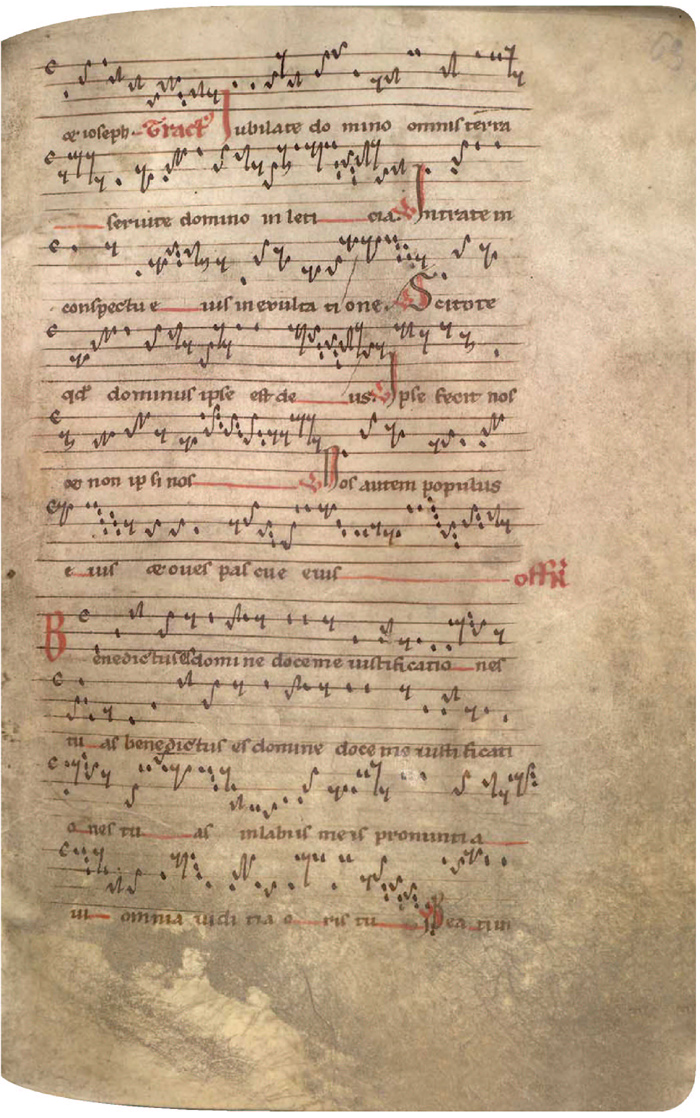 63
& ioseph. Tract' Iubilate do mino omnis terra
seruite domino in leti cia. V Intrate in
conspectu e ius in exulta ti one. V Scitote
qd' dominus ipse est de us. V Ipse fecit nos
& non ip si nos V Nos autem populus
e ius & oues pas cue eius offr̄
Benedictus es domi ne doce me iustificatio nes
tu as benedictus es domine doce me iustificati
o nes tu as in labiis meis pronunti a
ui omnia iudi tia o ris tu Bea tim